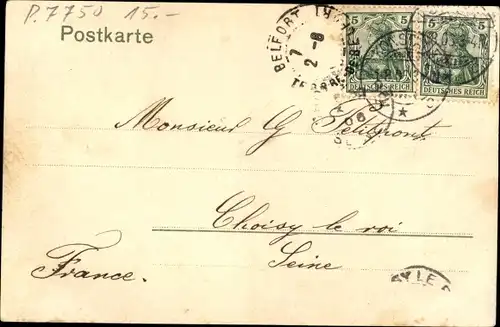 P. 7750 15.-
Postkarte
BELFORT
5 5
DEUTSCHES REICH DEUTSCHES REICH
Monsieur G Petitmont
Choisy le roi
Seine
France.